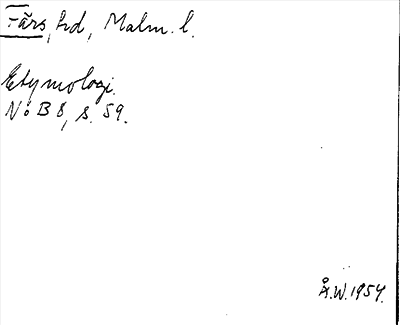 Färs, hd, Malm. l.
Etymologi.
NoB 8, s. 59.
Å.W. 1954.